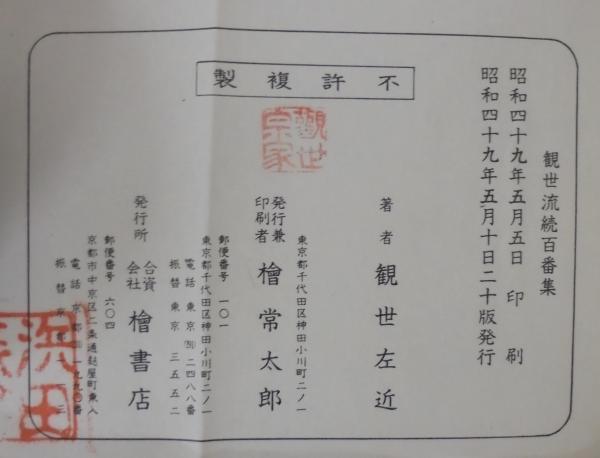 観世流続百番集
昭和四十九年五月五日 印刷
昭和四十九年五月十日二十版発行
不許複製
観世宗家
著者 観世左近
東京都千代田区神田小川町二ノ一
発行兼印刷者 檜常太郎
郵便番号 一〇一
東京都千代田区神田小川町二ノ一
電話 東京 二四八八番
振替 東京 三五五二
発行所 合資会社 檜書店
郵便番号 六〇四
京都市中京区二条通麩屋町東入
電話 京都 一九九〇番
振替 京都 一一三
浜田